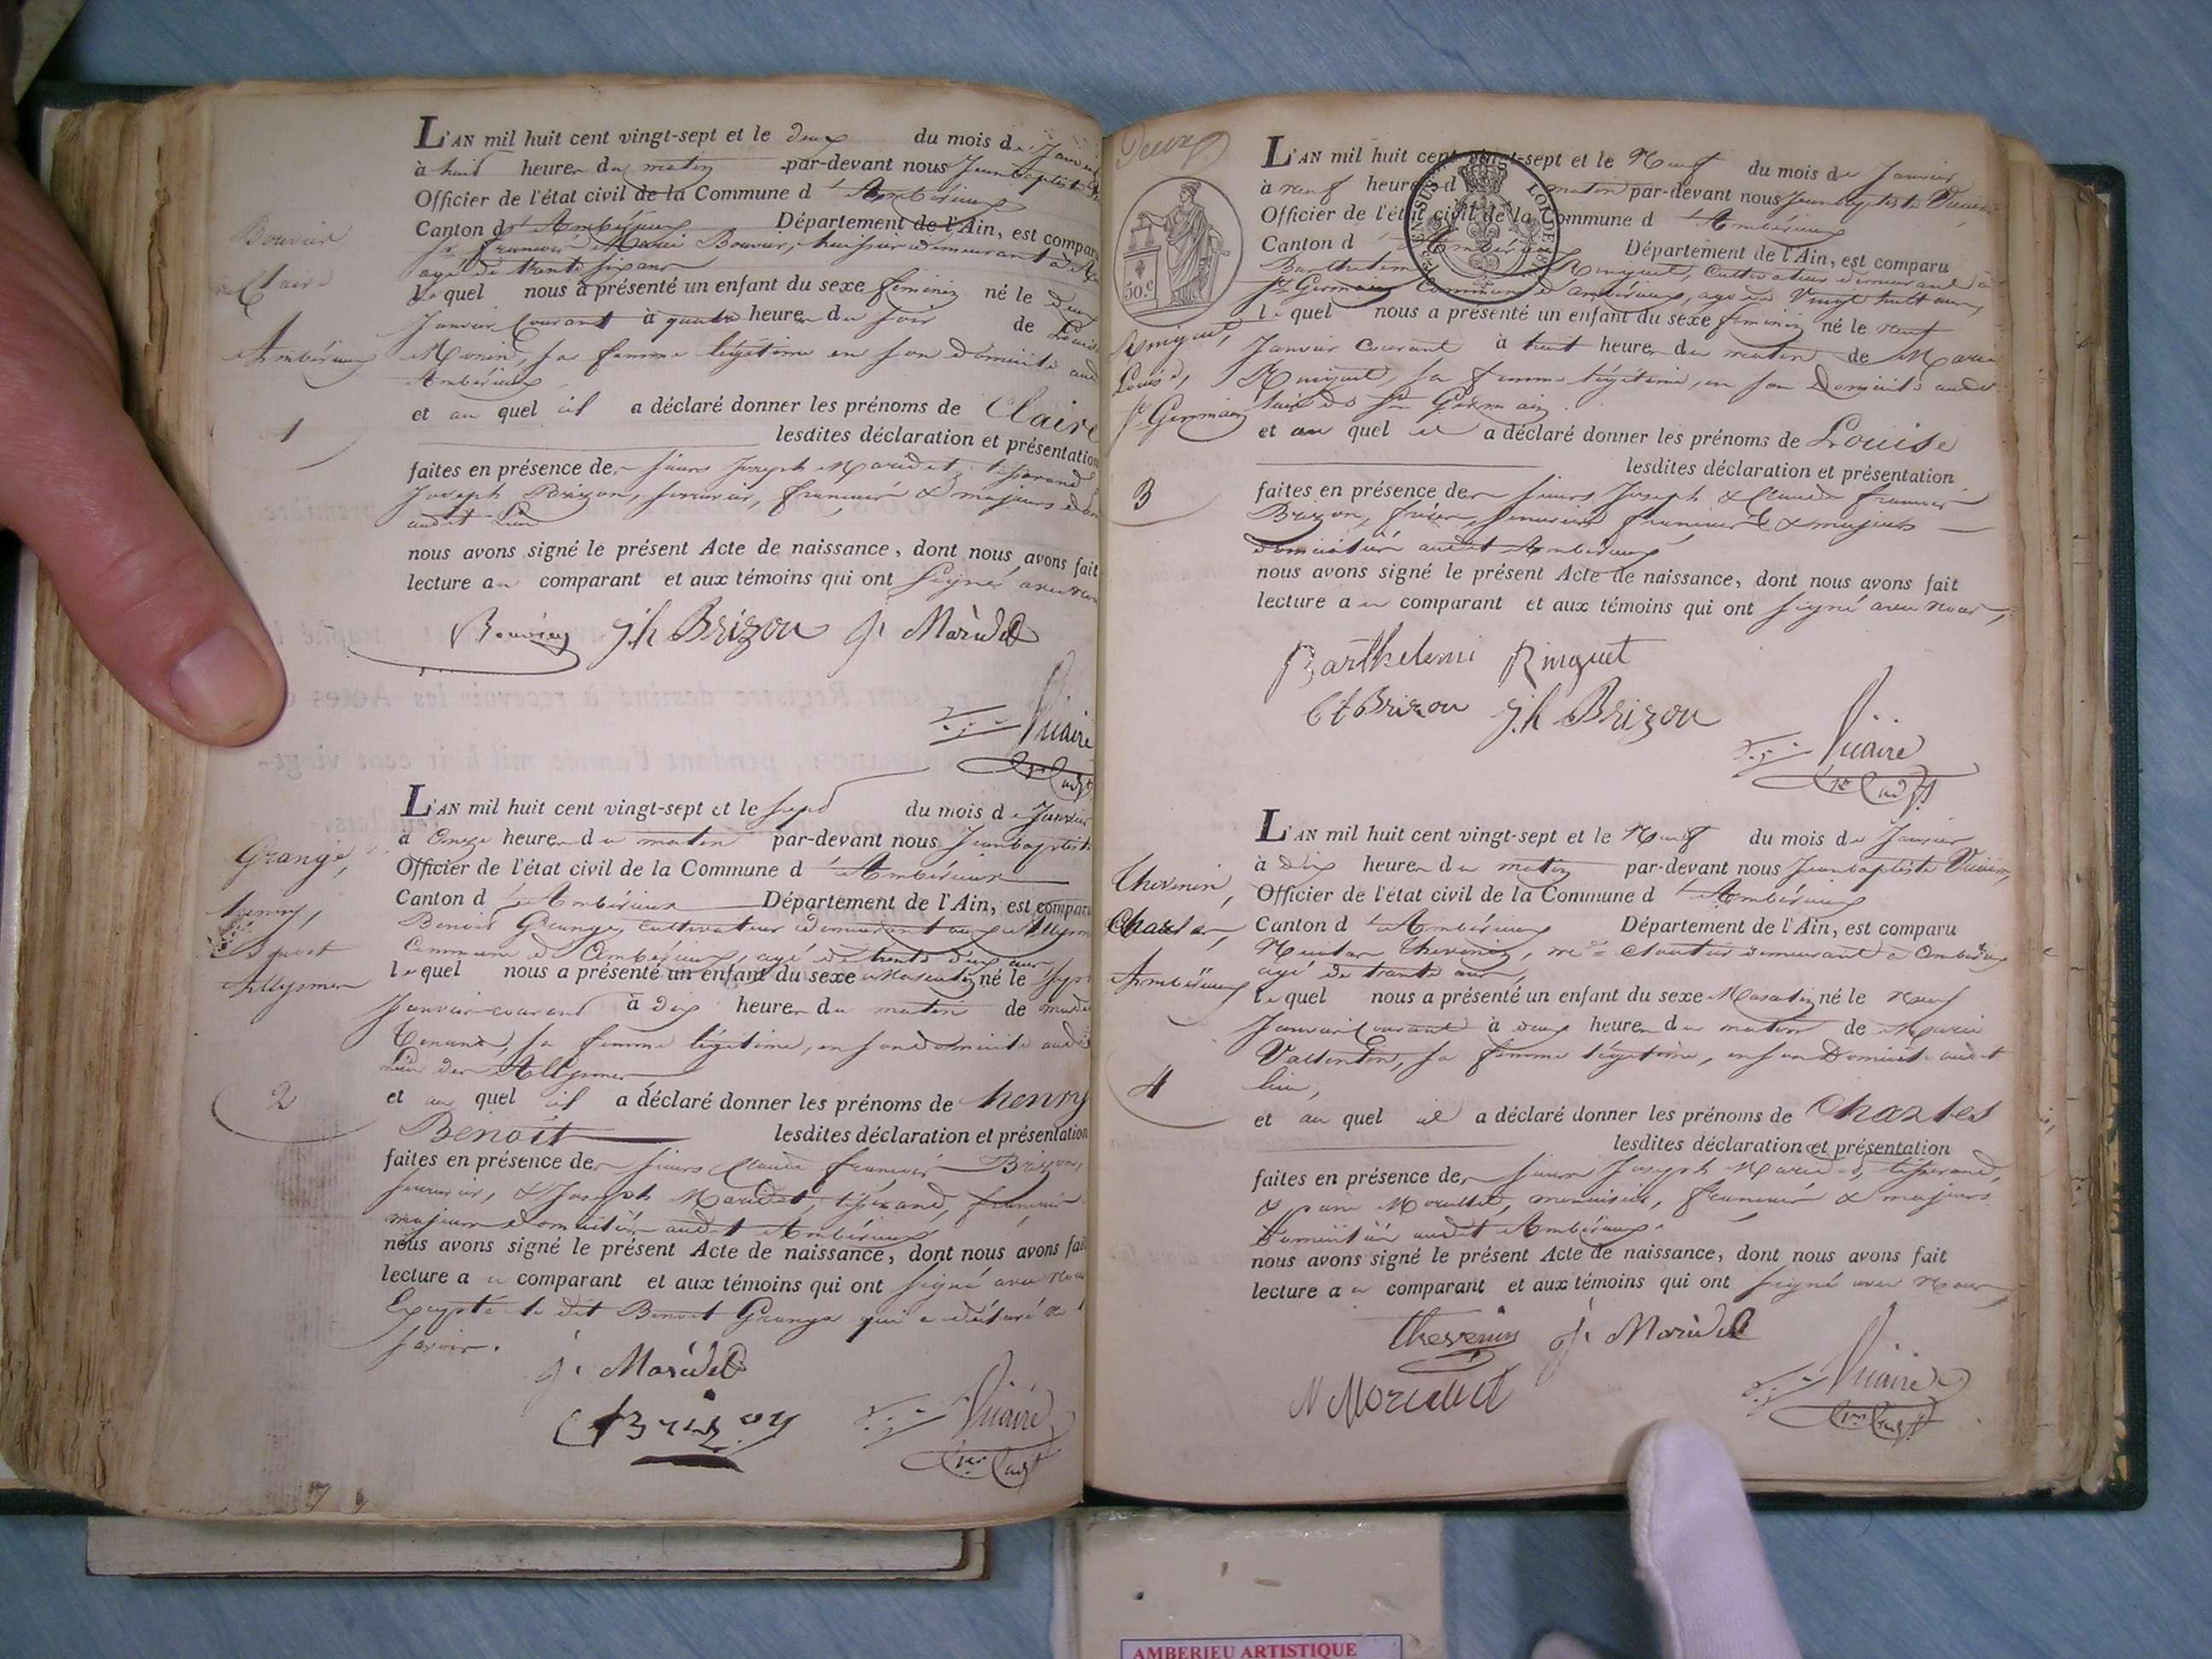 L'AN mil huit cent vingt-sept et le deux du mois de Janvier
à huit heures du matin par-devant nous Jean baptiste
Officier de l'état civil de la Commune d'Ambérieux
Canton d'Ambérieux Département de l'Ain, est comparu
Sr françois Marie Bouvier, huissier demeurant à
agé de trente six ans
lequel nous a présenté un enfant du sexe féminin né le deux
Janvier Courant à quatre heures du soir de Louise
Monin, sa femme légitime en son domicile audit
Ambérieux
et au quel il a déclaré donner les prénoms de Claire
lesdites déclaration et présentation
faites en présence des sieurs Joseph Maridet, tisserand
Joseph Brizon, serrurier, françois & majeurs
audit Lieu
nous avons signé le présent Acte de naissance, dont nous avons fait
lecture au comparant et aux témoins qui ont signé avec nous
Bouvier
Claire
Ambérieux
1
Bouvier Jh Brizon J. Maridet
Vicaire
1er adjt
L'AN mil huit cent vingt-sept et le sept du mois de Janvier
à onze heures du matin par-devant nous Jean baptiste
Officier de l'état civil de la Commune d'Ambérieux
Canton d'Ambérieux Département de l'Ain, est comparu
Benoit Grange, cultivateur demeurant aux Allymes
Commune d'Ambérieux, agé de trente deux ans
lequel nous a présenté un enfant du sexe Masculin né le sept
Janvier courant à dix heures du matin de
sa femme légitime, en son domicile audit
Lieu des Allymes
et au quel il a déclaré donner les prénoms de henry
Benoit lesdites déclaration et présentation
faites en présence des sieurs Claude françois Brizon,
serrurier, & Joseph Maridet, tisserand, françois
majeurs domiciliés audit Ambérieux
nous avons signé le présent Acte de naissance, dont nous avons fait
lecture au comparant et aux témoins qui ont signé avec nous
Excepté le dit Benoit Grange qui a déclaré ne
savoir.
Grange,
henry,
Benoit
Allymes
2
J. Maridet
Brizon
Vicaire
1er adjt
Deux
50.c
L'AN mil huit cent vingt-sept et le Neuf du mois de Janvier
à neuf heures du matin par-devant nous Jean baptiste Vicaire
Officier de l'état civil de la Commune d'Ambérieux
Canton d'Ambérieux Département de l'Ain, est comparu
Barthelemy Ringuet, Cultivateur demeurant à
St Germain Commune d'ambérieux, agé de Vingt huit ans
lequel nous a présenté un enfant du sexe féminin né le neuf
Janvier Courant à huit heures du matin de Marie
Ringuet, sa femme légitime, en son Domicile audit
lieu de St Germain
et au quel il a déclaré donner les prénoms de Louise
lesdites déclaration et présentation
faites en présence des sieurs Joseph & Claude françois
Brizon, frères, serruriers françois & majeurs
domiciliés audit Ambérieux
nous avons signé le présent Acte de naissance, dont nous avons fait
lecture au comparant et aux témoins qui ont signé avec nous,
Ringuet,
Louise,
St Germain
3
Barthelemi Ringuet
Cl Brizon Jh Brizon
Vicaire
1er adjt
L'AN mil huit cent vingt-sept et le Neuf du mois de Janvier
à dix heures du matin par-devant nous Jean baptiste Vicaire,
Officier de l'état civil de la Commune d'Ambérieux
Canton d'Ambérieux Département de l'Ain, est comparu
Thevenin, md demeurant à Ambérieux
agé de trente ans,
lequel nous a présenté un enfant du sexe Masculin né le neuf
Janvier Courant à deux heures du matin de Marie
Vallentin, sa femme légitime, en son Domicile audit
lieu,
et au quel il a déclaré donner les prénoms de Charles
lesdites déclaration et présentation
faites en présence des sieurs Joseph Maridet, tisserand,
& menuisier, françois & majeurs
Domiciliés audit Ambérieux.
nous avons signé le présent Acte de naissance, dont nous avons fait
lecture au comparant et aux témoins qui ont signé avec nous,
Thevenin,
Charles,
Ambérieux
4
thevenin J. Maridet
Vicaire
1er adjt
AMBERIEU ARTISTIQUE